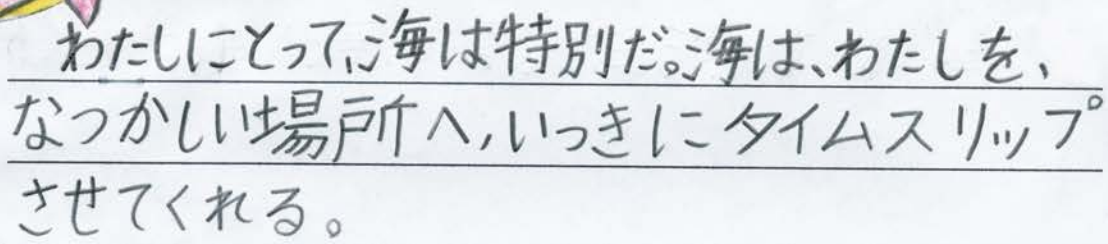 わたしにとって、海は特別だ。海は、わたしを、
なつかしい場所へ、いっきにタイムスリップ
させてくれる。